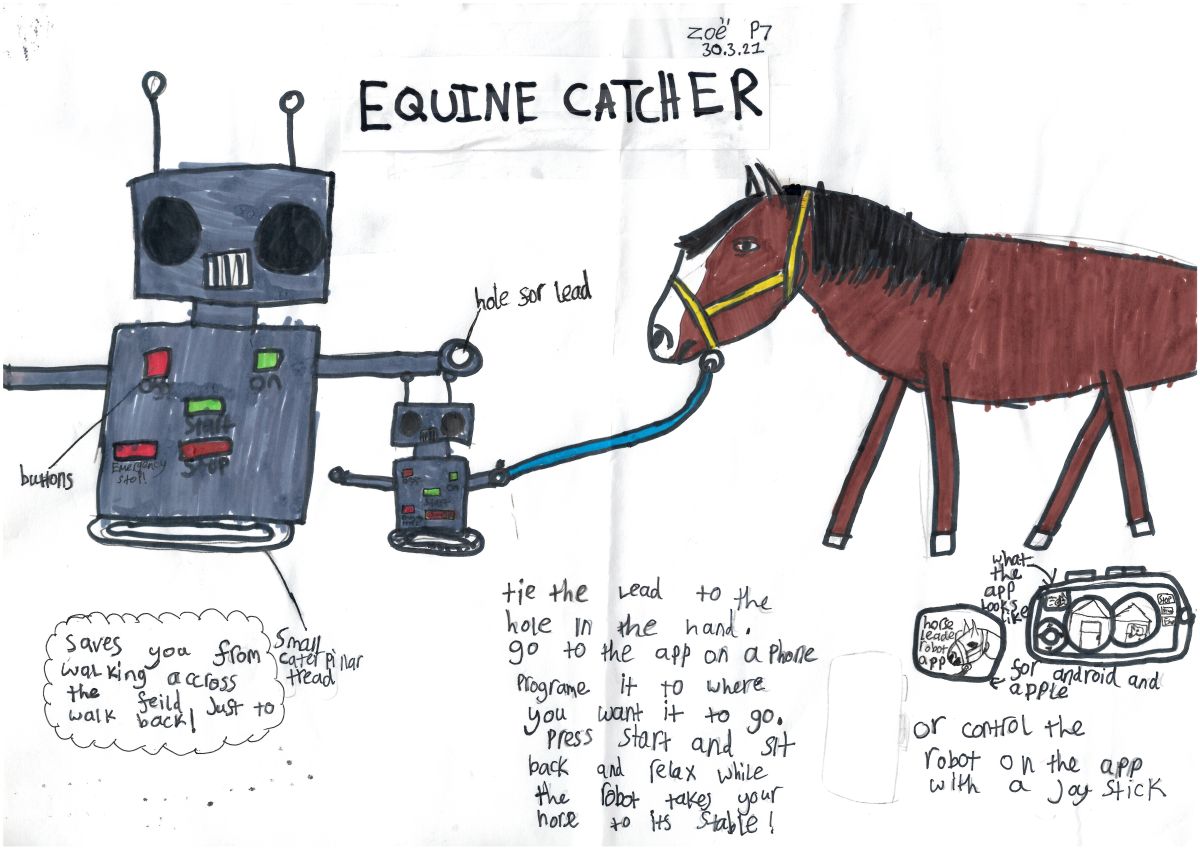 zoë P7
30.3.21
EQUINE CATCHER
hole for lead
off
on
start
Emergency
stop!
stop
buttons
off
on
start
small
caterpinar
tread
saves you from
walking accross
the feild just to
walk back!
tie the lead to the
hole in the hand.
go to the app on a phone
programe it to where
you want it to go.
press start and sit
back and relax while
the robot takes your
horse to its stable!
what
the
app
looks
like
horse
leader
robot
app
stop
for android and
apple
or control the
robot on the app
with a joy stick